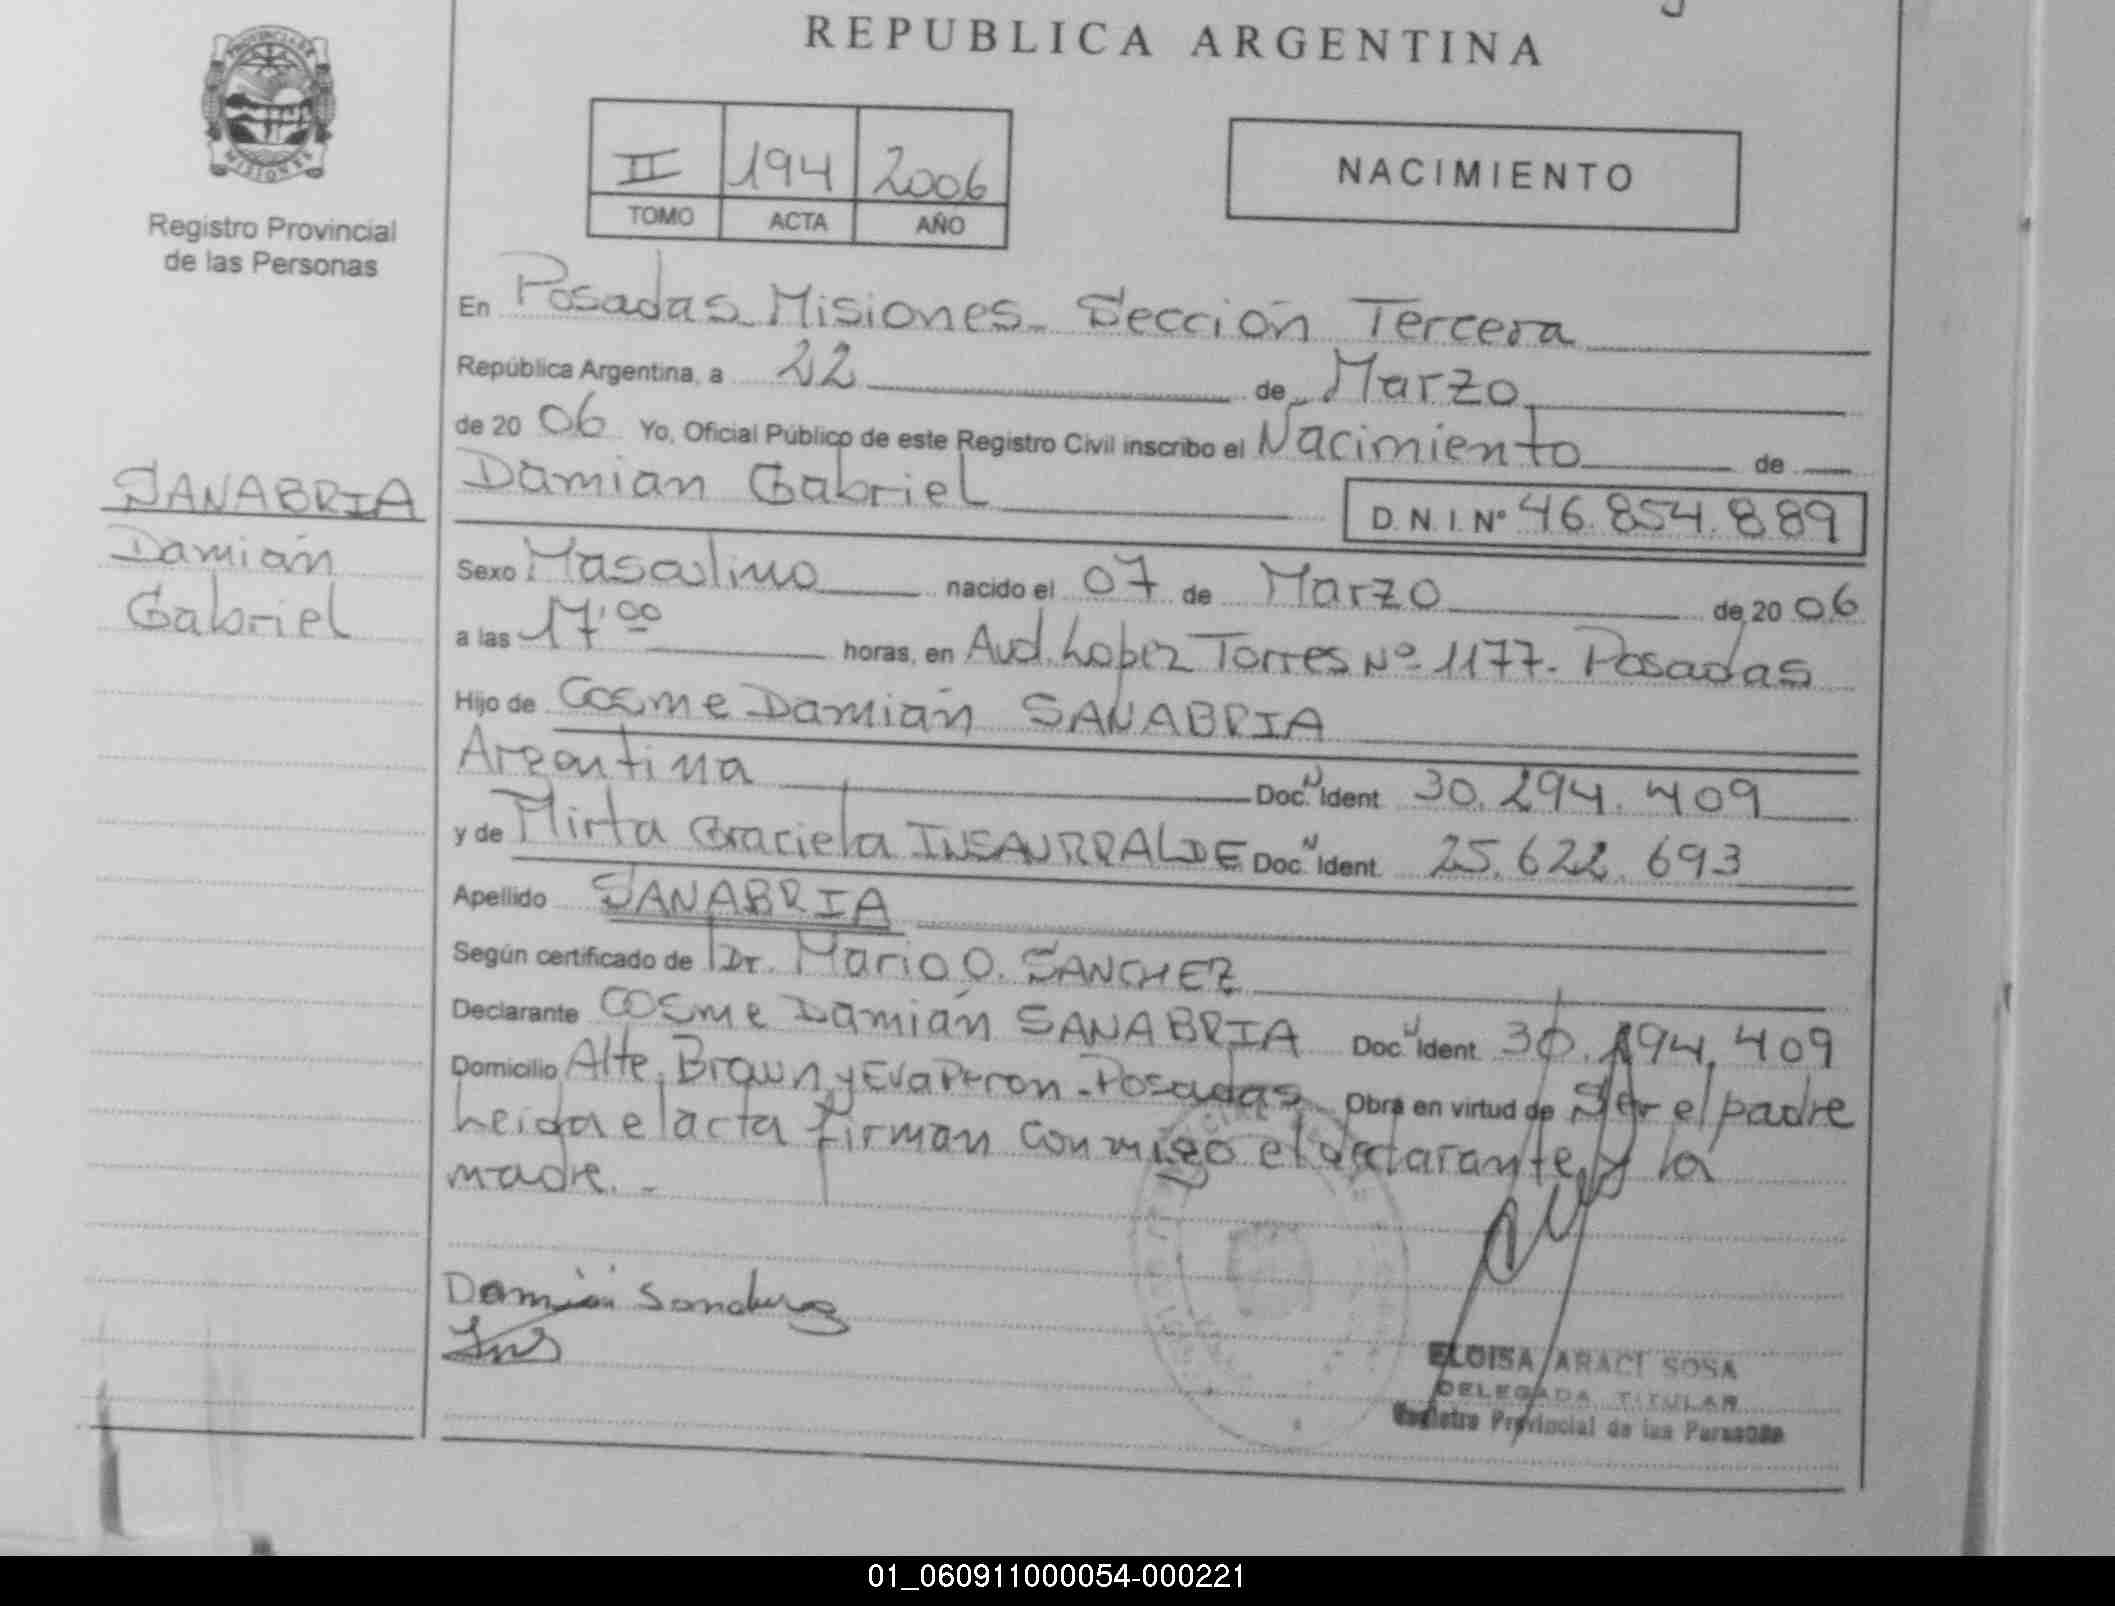 REPUBLICA ARGENTINA
PROVINCIA DE
MISIONES
Registro Provincial
de las Personas
II 194 2006
TOMO ACTA AÑO
NACIMIENTO
En Posadas Misiones Sección Tercera
República Argentina, a 22 de Marzo
de 20 06 Yo, Oficial Público de este Registro Civil inscribo el Nacimiento de
SANABRIA
Damián
Gabriel
Damian Gabriel D.N.I. Nº 46.854.889
Sexo Masculino nacido el 07 de Marzo de 20 06
a las 17:00 horas, en Avd. Lopez Torres Nº 1177. Posadas
Hijo de Cosme Damián SANABRIA
Argentina Doc. N Ident 30.294.409
y de Mirta Graciela INSAURRALDE Doc. N Ident. 25.622.693
Apellido SANABRIA
Según certificado de Dr. Mario O. SANCHEZ
Declarante Cosme Damián SANABRIA Doc. N Ident. 30.294.409
Domicilio Alte. Brown y Eva Peron - Posadas Obra en virtud de Ser el padre
Leida el acta firman conmigo el declarante y la
madre. -
Damián
ELOISA ARACI SOSA
DELEGADA TITULAR
Registro Provincial de las Personas
01_060911000054-000221